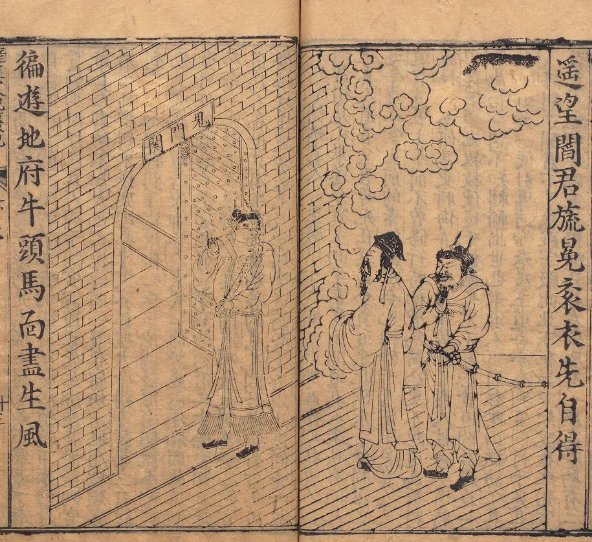 遥望閻君旒冕衮衣先自得
鬼門關
徧遊地府牛頭馬面盡生風